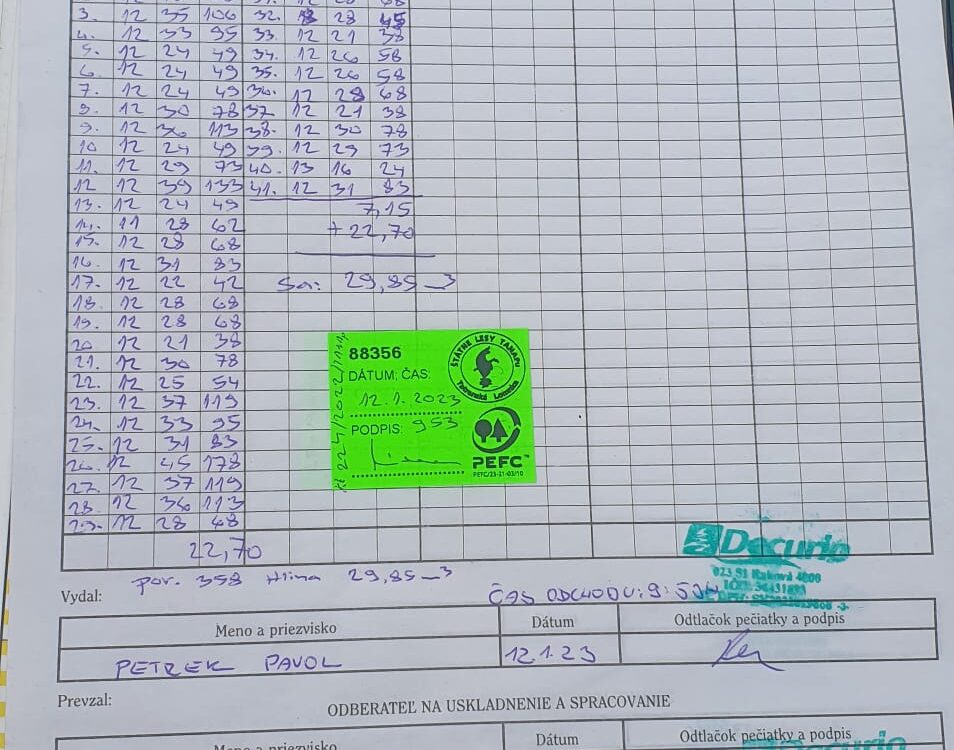 3. 12 35 106 32. 28 45
4. 12 33 95 33. 12 21 38
5. 12 24 49 34. 12 26 58
6. 12 24 49 35. 12 26 58
7. 12 24 49 36. 12 28 68
8. 12 30 78 37. 12 21 38
9. 12 36 113 38. 12 30 78
10 12 24 49 39. 12 29 73
11. 12 29 73 40. 13 16 24
12 12 39 133 41. 12 31 83
13. 12 24 49 7,15
14. 11 28 62 + 22,70
15. 12 28 68
16. 12 31 83
17. 12 22 42 Sa: 29,85 _3
18. 12 28 68
19. 12 28 68
20 12 21 38
21. 12 30 78
22. 12 25 54
23. 12 37 119
24. 12 33 95
25. 12 31 83
26. 12 45 178
27. 12 37 119
28. 12 36 113
29. 12 28 68
22,70
88356
DÁTUM; ČAS:
12.1.2023
PODPIS: 953
ŠTÁTNE LESY TANAPu
Tatranská Lomnica
PEFC™
PEFC/23-21-03/10
por. 358 Hlina 29,85 _3
ČAS ODCHODU: 9:
Decurio
Vydal:
Meno a priezvisko Dátum Odtlačok pečiatky a podpis
PETREK PAVOL 12.1.23
Prevzal:
ODBERATEĽ NA USKLADNENIE A SPRACOVANIE
Meno a priezvisko Dátum Odtlačok pečiatky a podpis
Decurio